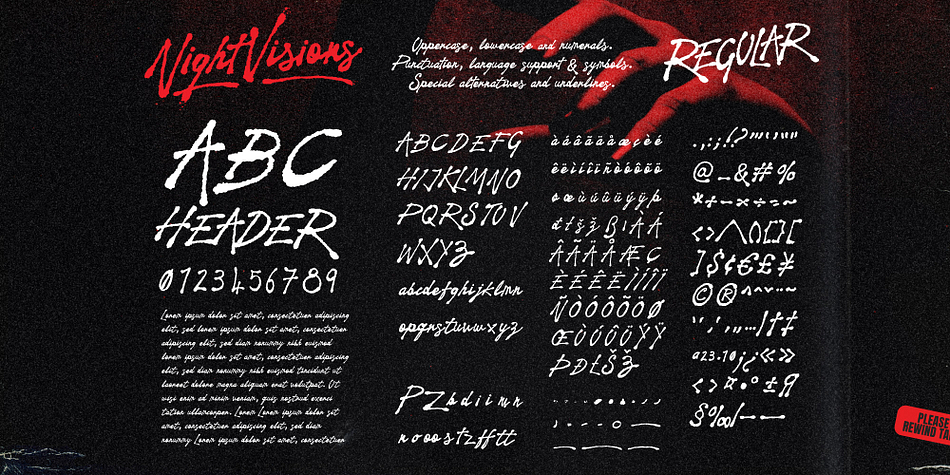 Night Visions
Uppercase, lowercase and numerals.
Punctuation, language support & symbols.
Special alternatives and underlines.
REGULAR
ABC
HEADER
0123456789
Lorem ipsum dolor sit amet, consectetuer adipiscing
elit, sed lorem ipsum dolor sit amet, consectetuer
adipiscing elit, sed diam nonummy nibh euismod
lorem ipsum dolor sit amet, consectetuer adipiscing
elit, sed diam nonummy nibh euismod tincidunt ut
laoreet dolore magna aliquam erat volutpat. Ut
wisi enim ad minim veniam, quis nostrud exerci
tation ullamcorper. Lorem Lorem ipsum dolor sit
amet, consectetuer adipiscing elit, sed diam
nonummy Lorem ipsum dolor sit amet, consectetuer
ABCDEFG
HIJKLMNO
PQRSTUV
WXYZ
abcdefghijklmn
opqrstuvwxyz
PZbdiimn
nooostzfftt
àáâãäåæçèé
êëìíîïñòóôõö
øœùúûüýÿþ
ÂÃÄÅÆÇ
ÈÉÊËÌÍÎÏ
ÑÒÓÔÕÖØ
ŒÙÚÛÜÝŸ
ÞÐŁŠŽ
@_&#%
*+-×÷=~
]$¢€£¥
©®^ˇ˘¨~
<>¤•°±¶
PLEASE
REWIND